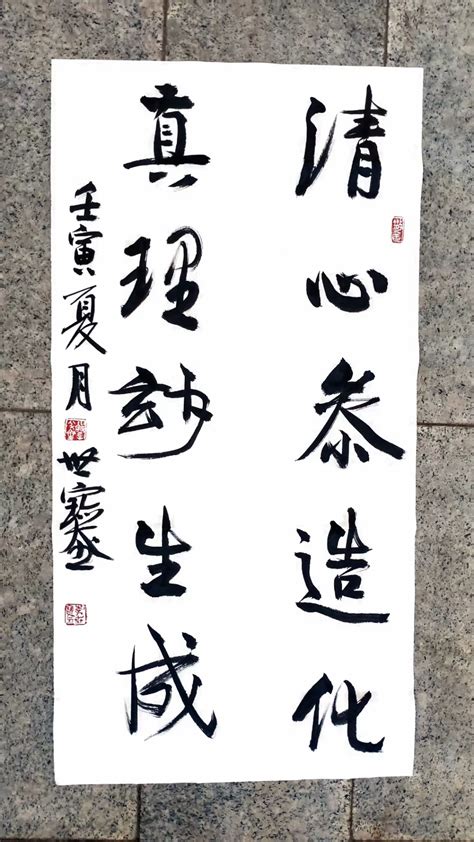 清心参造化
真理妙生成
壬寅夏月
世宝